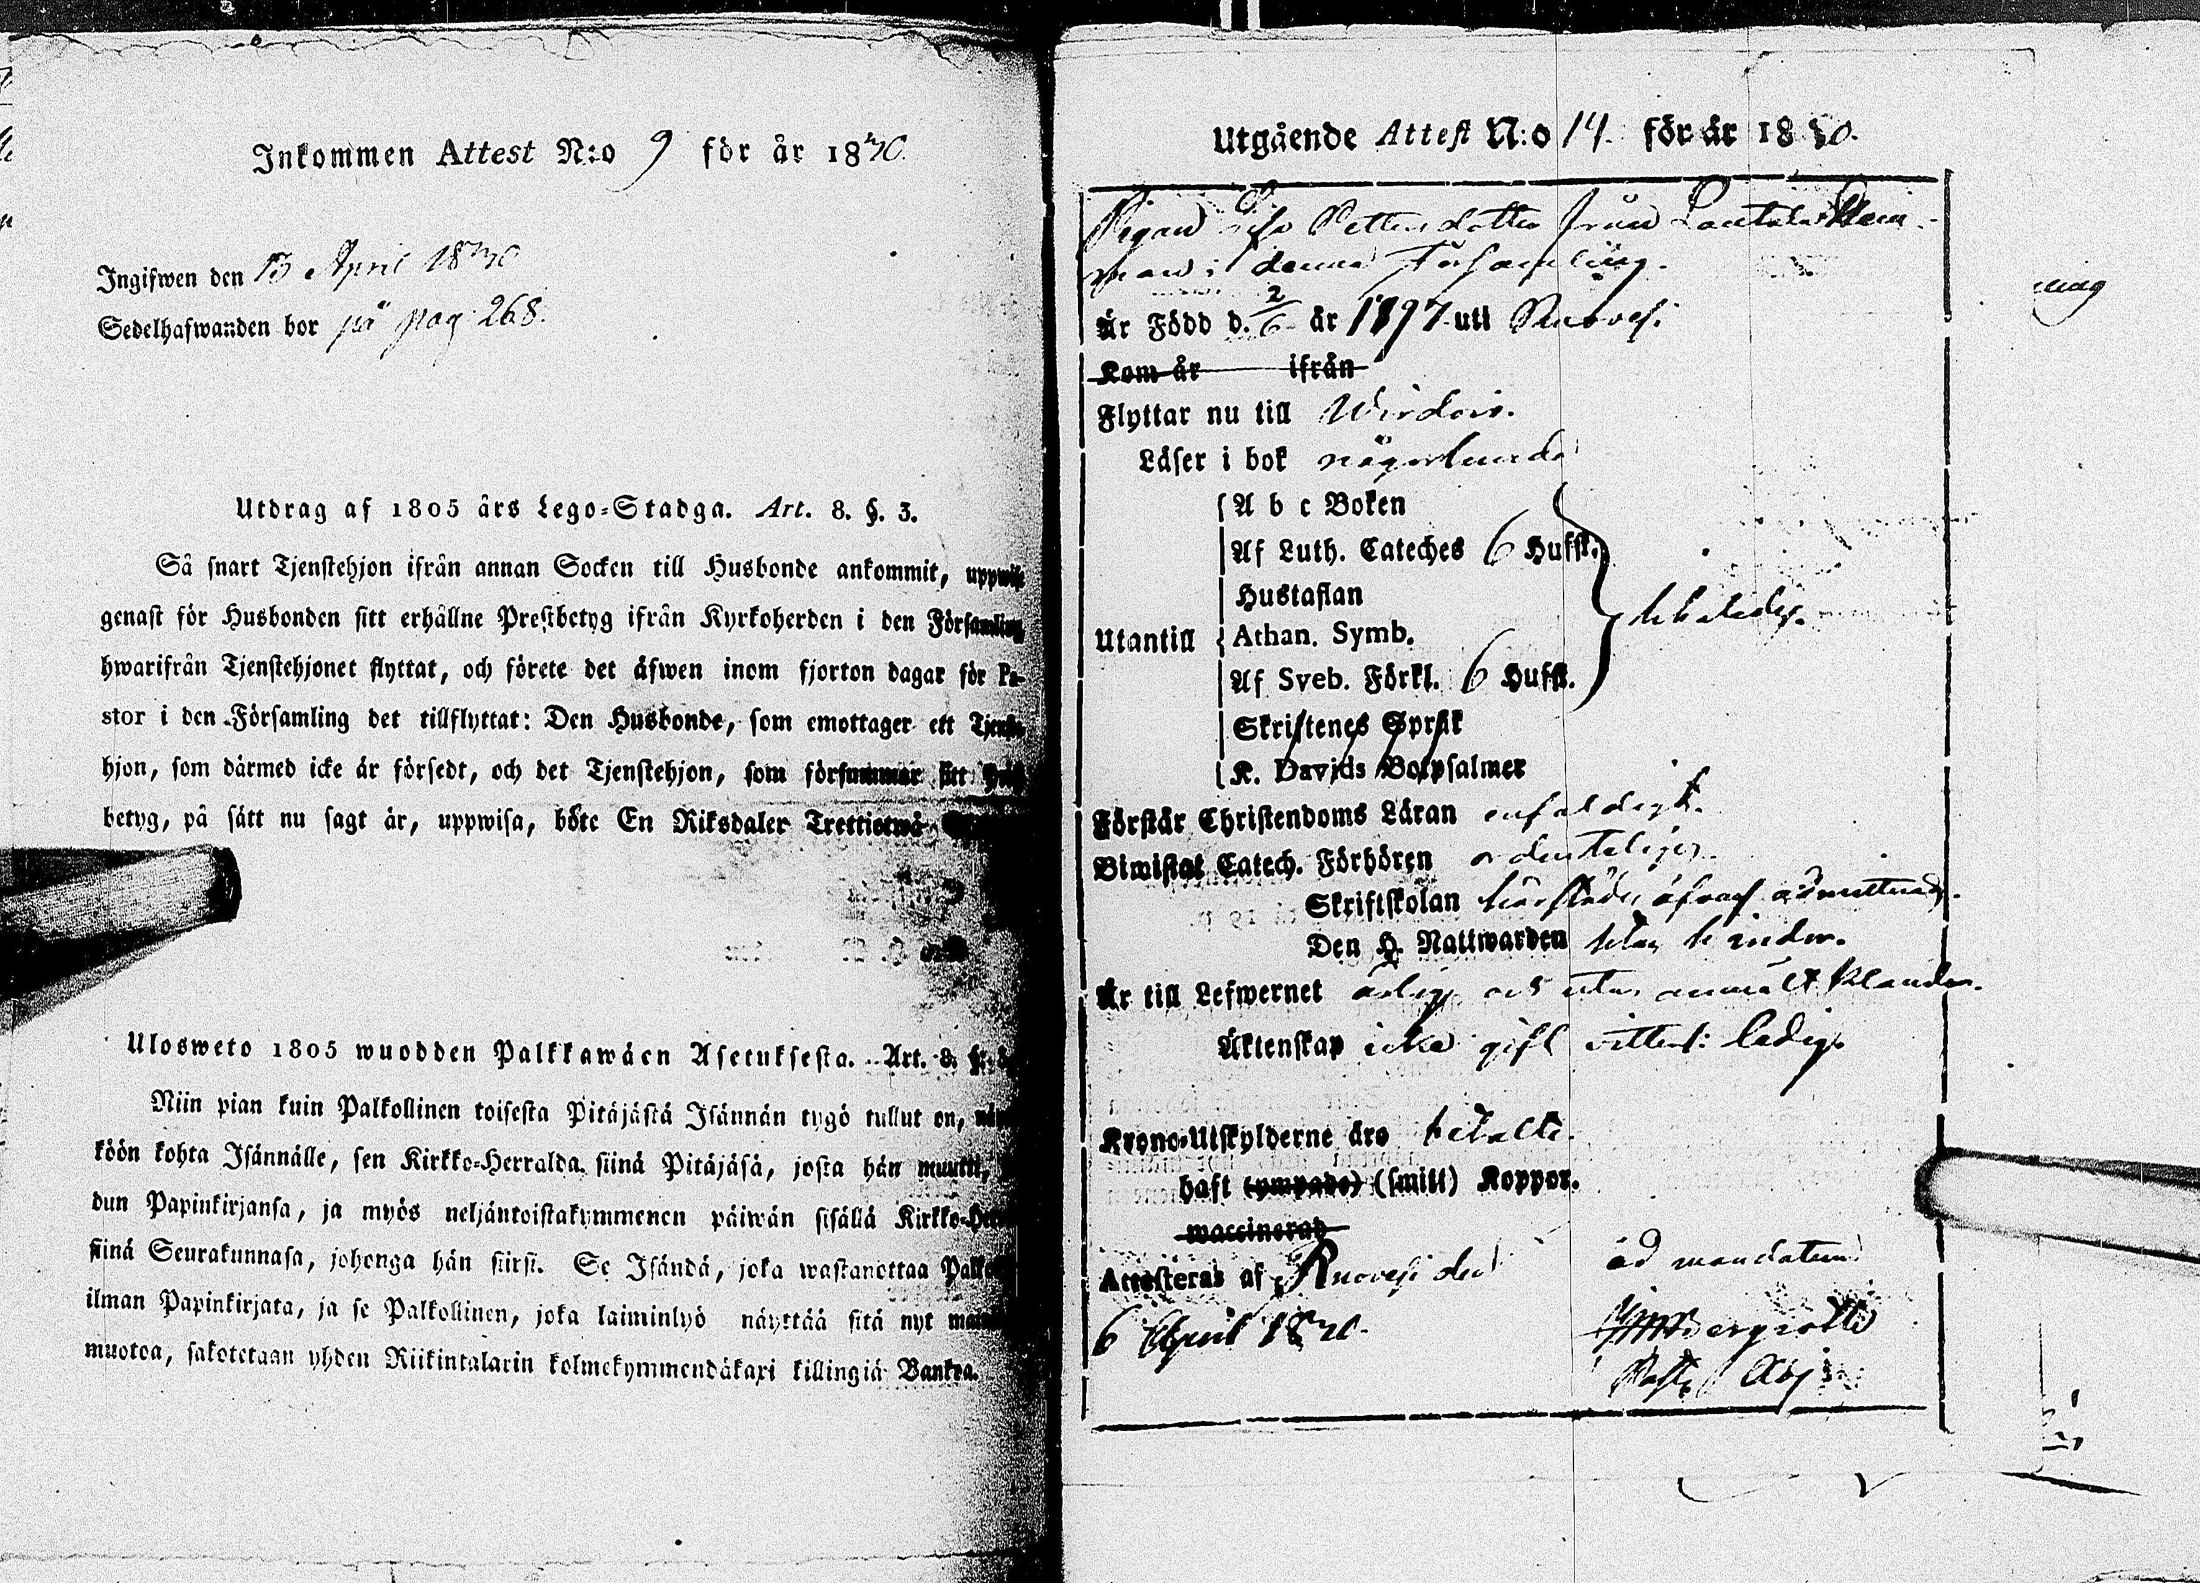 Inkommen Attest N:o 9 för år 1840.
Ingifwen den 13 April 1840
Sedelhafwanden bor på pag: 268.
Utdrag af 1805 års Lego-Stadga. Art. 8. §. 3.
Så snart Tjenstehjon ifrån annan Socken till Husbonde ankommit, uppwise
genast för Husbonden sitt erhållne Prestbetyg ifrån Kyrkoherden i den Församling
hwarifrån Tjenstehjonet flyttat, och förete det äfwen inom fjorton dagar för Pa-
stor i den Församling det tillflyttat: Den Husbonde, som emottager ett Tjenste-
hjon, som därmed icke är försedt, och det Tjenstehjon, som försummar sitt
betyg, på sätt nu sagt är, uppwisa, böte En Riksdaler Trettiotwå
Ulosweto 1805 wuodden Palkkawäen Asetuksesta. Art. 8. §.
Niin pian kuin Palkollinen toisesta Pitäjästä Isännän tygö tullut on,
köön kohta Isännälle, sen Kirkko-Herralda siinä Pitäjäsä, josta hän muutti,
dun Papinkirjansa, ja myös neljäntoistakymmenen päiwän sisällä Kirkko-
siinä Seurakunnasa, johonga hän siirsi. Se Isändä, joka wastanottaa
ilman Papinkirjata, ja se Palkollinen, joka laiminlyö näyttää sitä nyt
muotoa, sakotetaan yhden Riikintalarin kolmekymmendäkaxi killingiä Bankoa.
Utgående Attest N:o 14. för år 1840.
Pigan Lisa Pettersdotter från
i denna Församling.
Är Född d. 2/6 år 1797 uti Ruovesi
Kom år ifrån
Flyttar nu till Wirdois.
Läser i bok någorlunda
A b c Boken
Af Luth. Cateches 6 Hufst.
Hustaflan
Utantill Athan. Symb.
Af Sveb. Förkl. 6 Hufst.
Skriftenes Språk
K. Davids Botpsalmer
Förstår Christendoms Läran enfaldigt.
Biwistat Catech. Förhören ordenteligen
Skriftskolan härstädes admitterad.
Den H. Nattwarden utan hinder.
Är till Lefwernet ärlig och utan anmält klander.
Äktenskap icke gift ledig.
Krono-Utskylderne äro betalte.
haft (ympade) (smitt) Koppor.
waccinerad
Attesteras af Ruovesi den ad mandatum
6 April 1840.